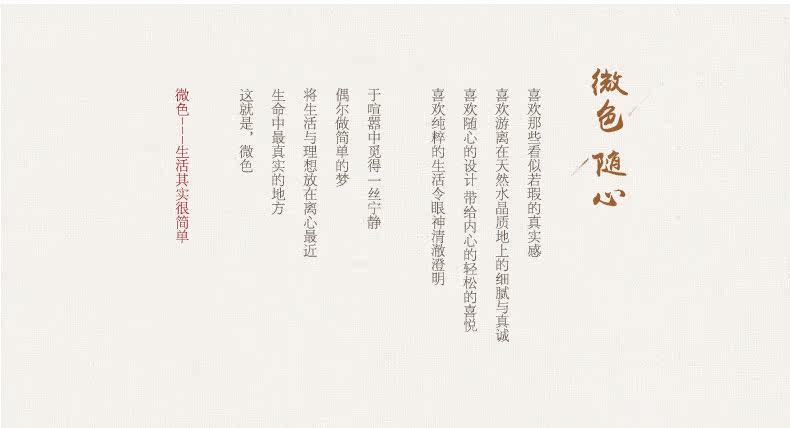 微色 随心
喜欢那些看似若瑕的真实感
喜欢游离在天然水晶质地上的细腻与真诚
喜欢随心的设计 带给内心的轻松的喜悦
喜欢纯粹的生活令眼神清澈澄明
于喧嚣中觅得一丝宁静
偶尔做简单的梦
将生活与理想放在离心最近
生命中最真实的地方
这就是，微色
微色———生活其实很简单